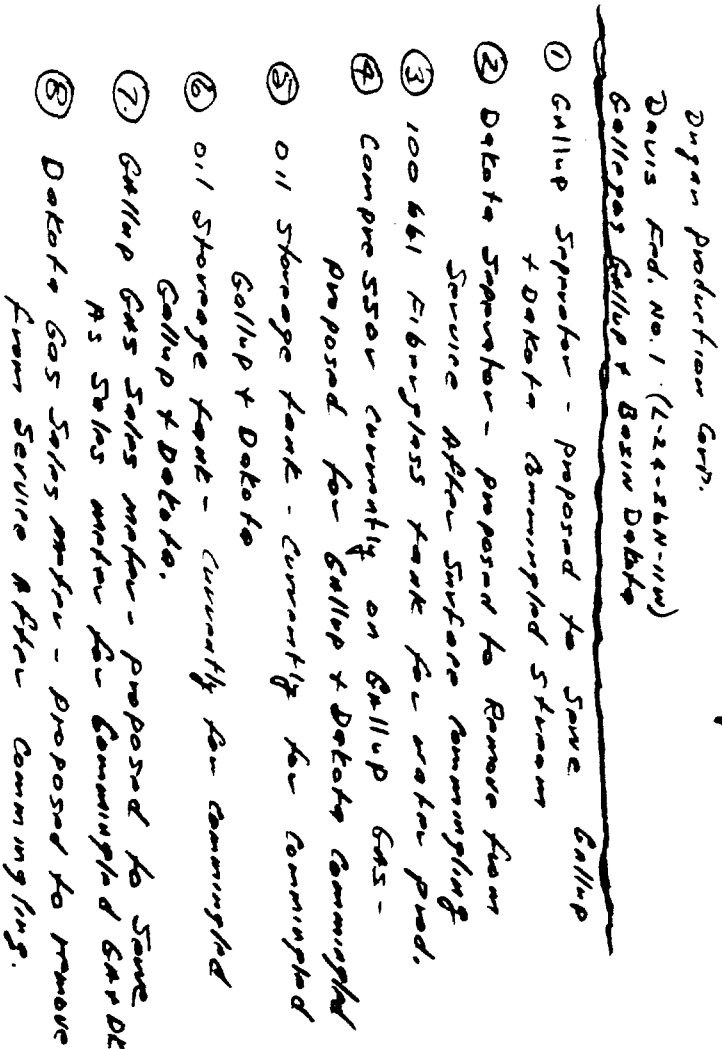 Dugan Production Corp.
Davis Fed. No. 1 (L-24-26N-11W)
Gallegos Gallup & Basin Dakota
① Gallup Separator - proposed to Serve Gallup
+ Dakota Commingled Stream
② Dakota Separator - proposed to Remove from
Service After Surface Commingling
③ 100 bbl Fiberglass tank for water prod.
④ Compressor currently on Gallup Gas -
proposed for Gallup + Dakota Commingled
⑤ Oil Storeage tank - currently for Commingled
Gallup + Dakota
⑥ Oil Storeage tank - currently for Commingled
Gallup + Dakota.
⑦ Gallup Gas Sales meter - proposed to Serve
As Sales meter for Commingled GA+DK
⑧ Dakota Gas Sales meter - proposed to remove
from Service After Commingling.